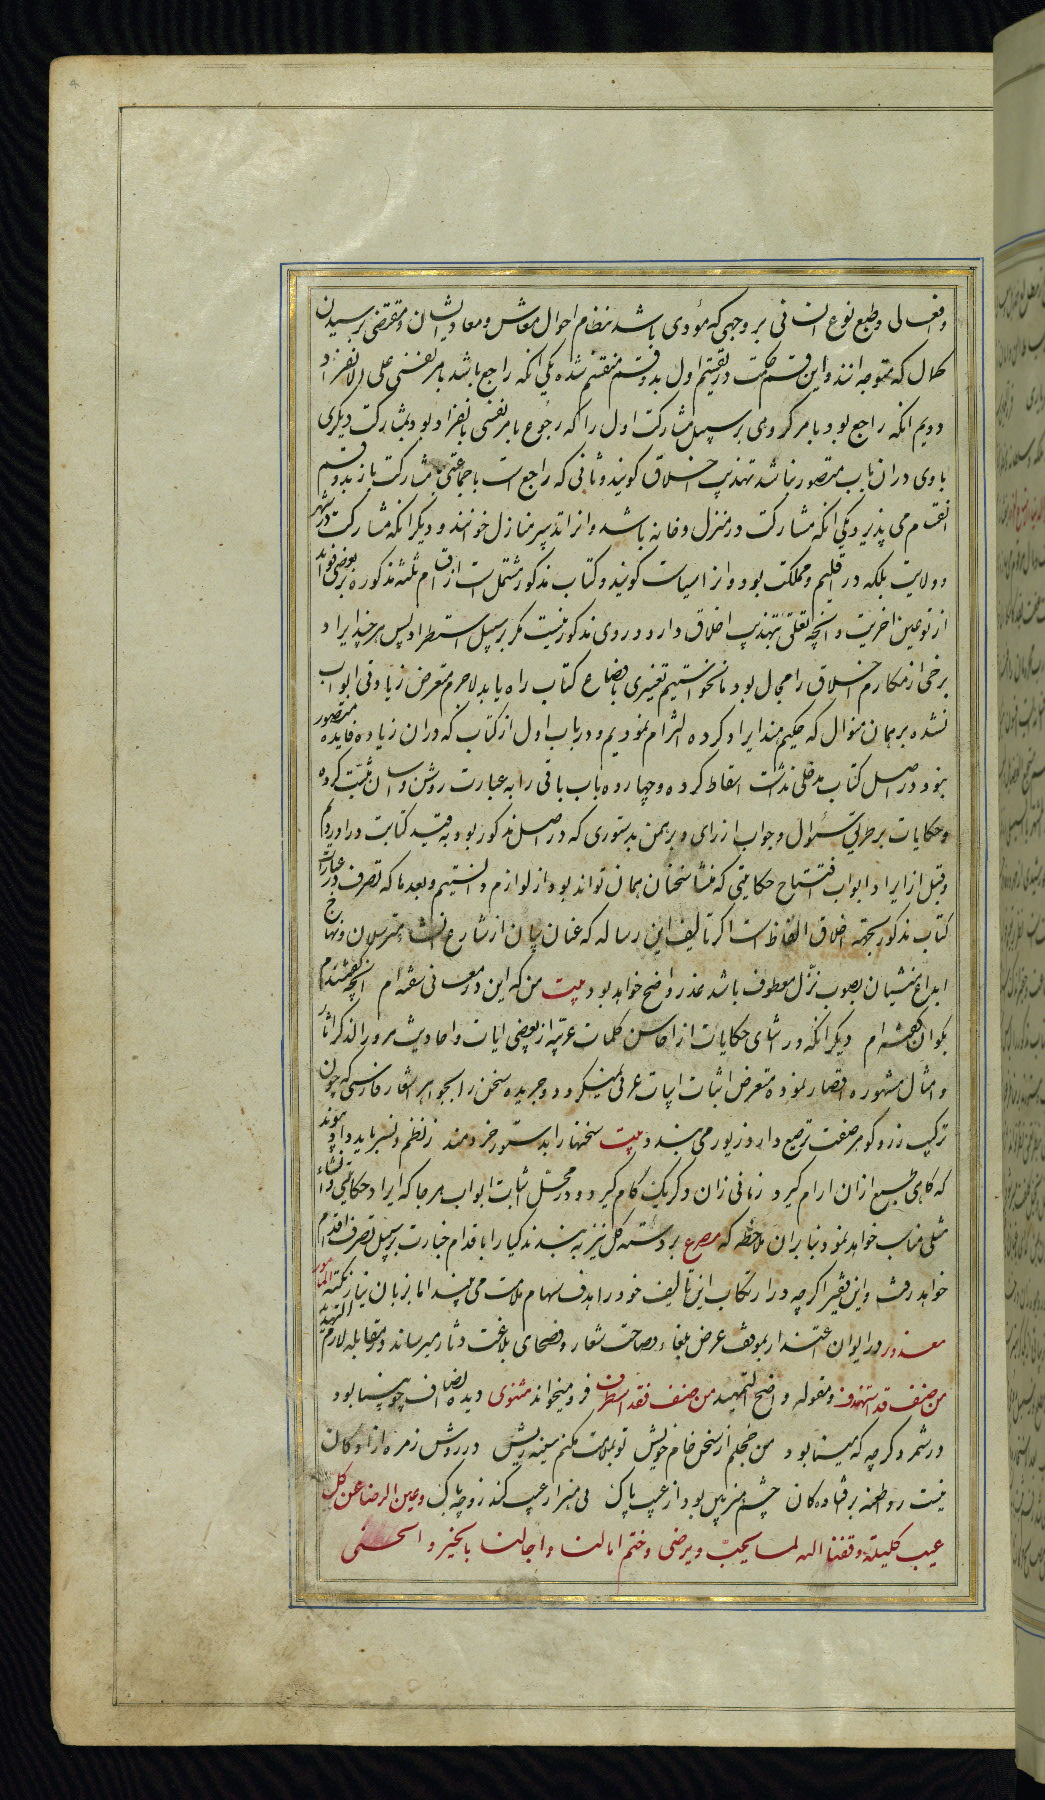 وافعالی وطبع نوع انسانی بر وجهی که مؤدی باشد بنظام احوال معاش ومعاد ایشان ومقتضی رسیدن
کمال که متوجه انند واین قسم حکمت در تقسیم اول بدو قسم منقسم شده یکی انکه راجع باشد باهر نفسی علی الانفراد
دویم انکه راجع بود بامر کروهی بر سبیل مشارکت اول را که رجوع با هر نفسی بانفراد بود وبمشارکت دیکری
با وی در ان باب متصور نباشد تهذیب اخلاق کویند وثانی که راجع است با جماعتی بمشارکت باز بدو قسم
انقسام می پذیرد یکی انکه مشارکت در منزل وخانه باشد وانرا تدبیر منازل خوانند ودیکر انکه مشارکت در شهر
وولایت بلکه در اقلیم ومملکت بود وانرا سیاست کویند وکتاب مذکور مشتمل است از اقسام ثلثه مذکوره بر بعضی فواید
از نوعین اخریت وانچه تعلق بتهذیب اخلاق دارد در وی مذکور نیست مکر بر سبیل استطراد پس هر چند ایراد
برخی از مکارم اخلاق را مجال بود ما نخواستیم تغییری باوضاع کتاب راه یابد لاجرم متعرض زیادتی ابواب
نشده بر همان منوال که حکیم هند ایراد کرده التزام نمودیم ودو باب اول از کتاب که در ان زیاده فایده متصور
نبود ودر اصل کتاب مدخلی نداشت اسقاط کرده وچهارده باب باقی را به عبارت روشن واسان مثبت کرده
وحکایات بر طریق سؤال وجواب از رای وبرهمن بدستوری که در اصل مذکور بود به قید کتابت در اوردیم
وقبل از ایراد ابواب افتتاح حکایتی که منشأ سخنان همان تواند بود از لوازم دانستیم وبعد ما که تصرف در عبارات
کتاب مذکور بجهته اغلاق الفاظ است اکر تالیف این رساله که عنان بیان از شارع انشاء مترسلان ومنهاج
ابداع منشیان بصوب نزل معطوف باشد عذر واضح خواهد بود بیت من که این در معانی سفته ام انچه کفتند
بکو ان کفته ام دیکر انکه در اثنای حکایات از احاسن کلمات عربیه از بعضی ایات واحادیث ضرورة الذکر واثار
وامثال مشهوره اقتصار نموده متعرض اثبات ابیات عربی نمیکردد وجریده سخن را بجواهر اشعار فارسی که چون
ترکیب زر وکوهر صفت ترصیع دارد زیور می بندد بیت سخنها را بدستور خردمند ز نظم ونثر باید داد پیوند
که کاهی طبع ازان ارام کیرد زمانی زان دکر یک کام کیرد ودر محل اثبات ابواب هر جا که ایراد حکایتی وانشاء
مثلی مناسب خواهد نمود بنابران ملاحظه که مصرع بر دسته کل نیز ببندند کیا را با قدام جسارت بر سبیل تصرف اقدام
خواهد رفت واین فقیر اکرچه در ارتکاب این تالیف خود را هدف سهام ملامت می بیند اما بزبان نیاز نکته المامور
معذور در ایوان اعتذار بموقف عرض بلغاء فصاحت شعار وفصحای بلاغت دثار میرساند
من صنف قد استهدف ومقوله واضح التمهید من صنف فقد استطرف فرو میخواند مثنوی دیده انصاف چو بینا بود
در شمرد کرچه که مینا بود من خجلم از سخن خام خویش تو بملامت مکنم سینه ریش در روش زمره ازادکان
نیست روا طعنه بر افتاده کان چشم هنر بین بود از عیب پاک بی هنر ار عیب کند زو چه باک وعین الرضا عن کل
عیب کلیلة وفقنا الله لما یحب ویرضی وختم امالنا واجالنا بالخیر والحسنی